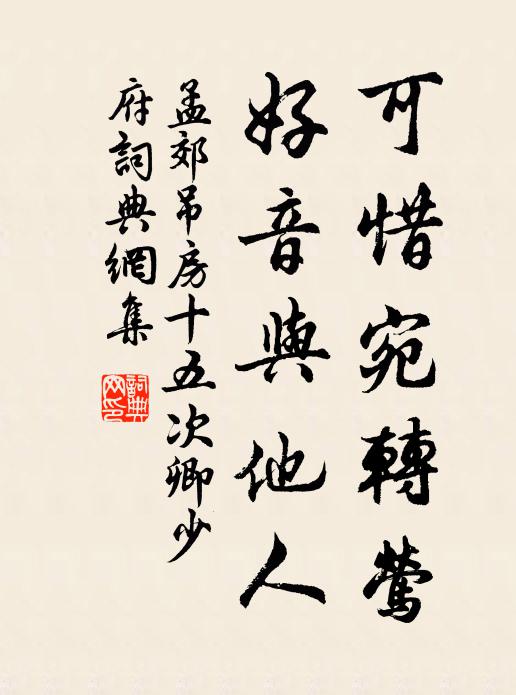 可惜宛轉鶯
好音與他人
孟郊吊房十五次卿少
府詞典網集
詞典网印